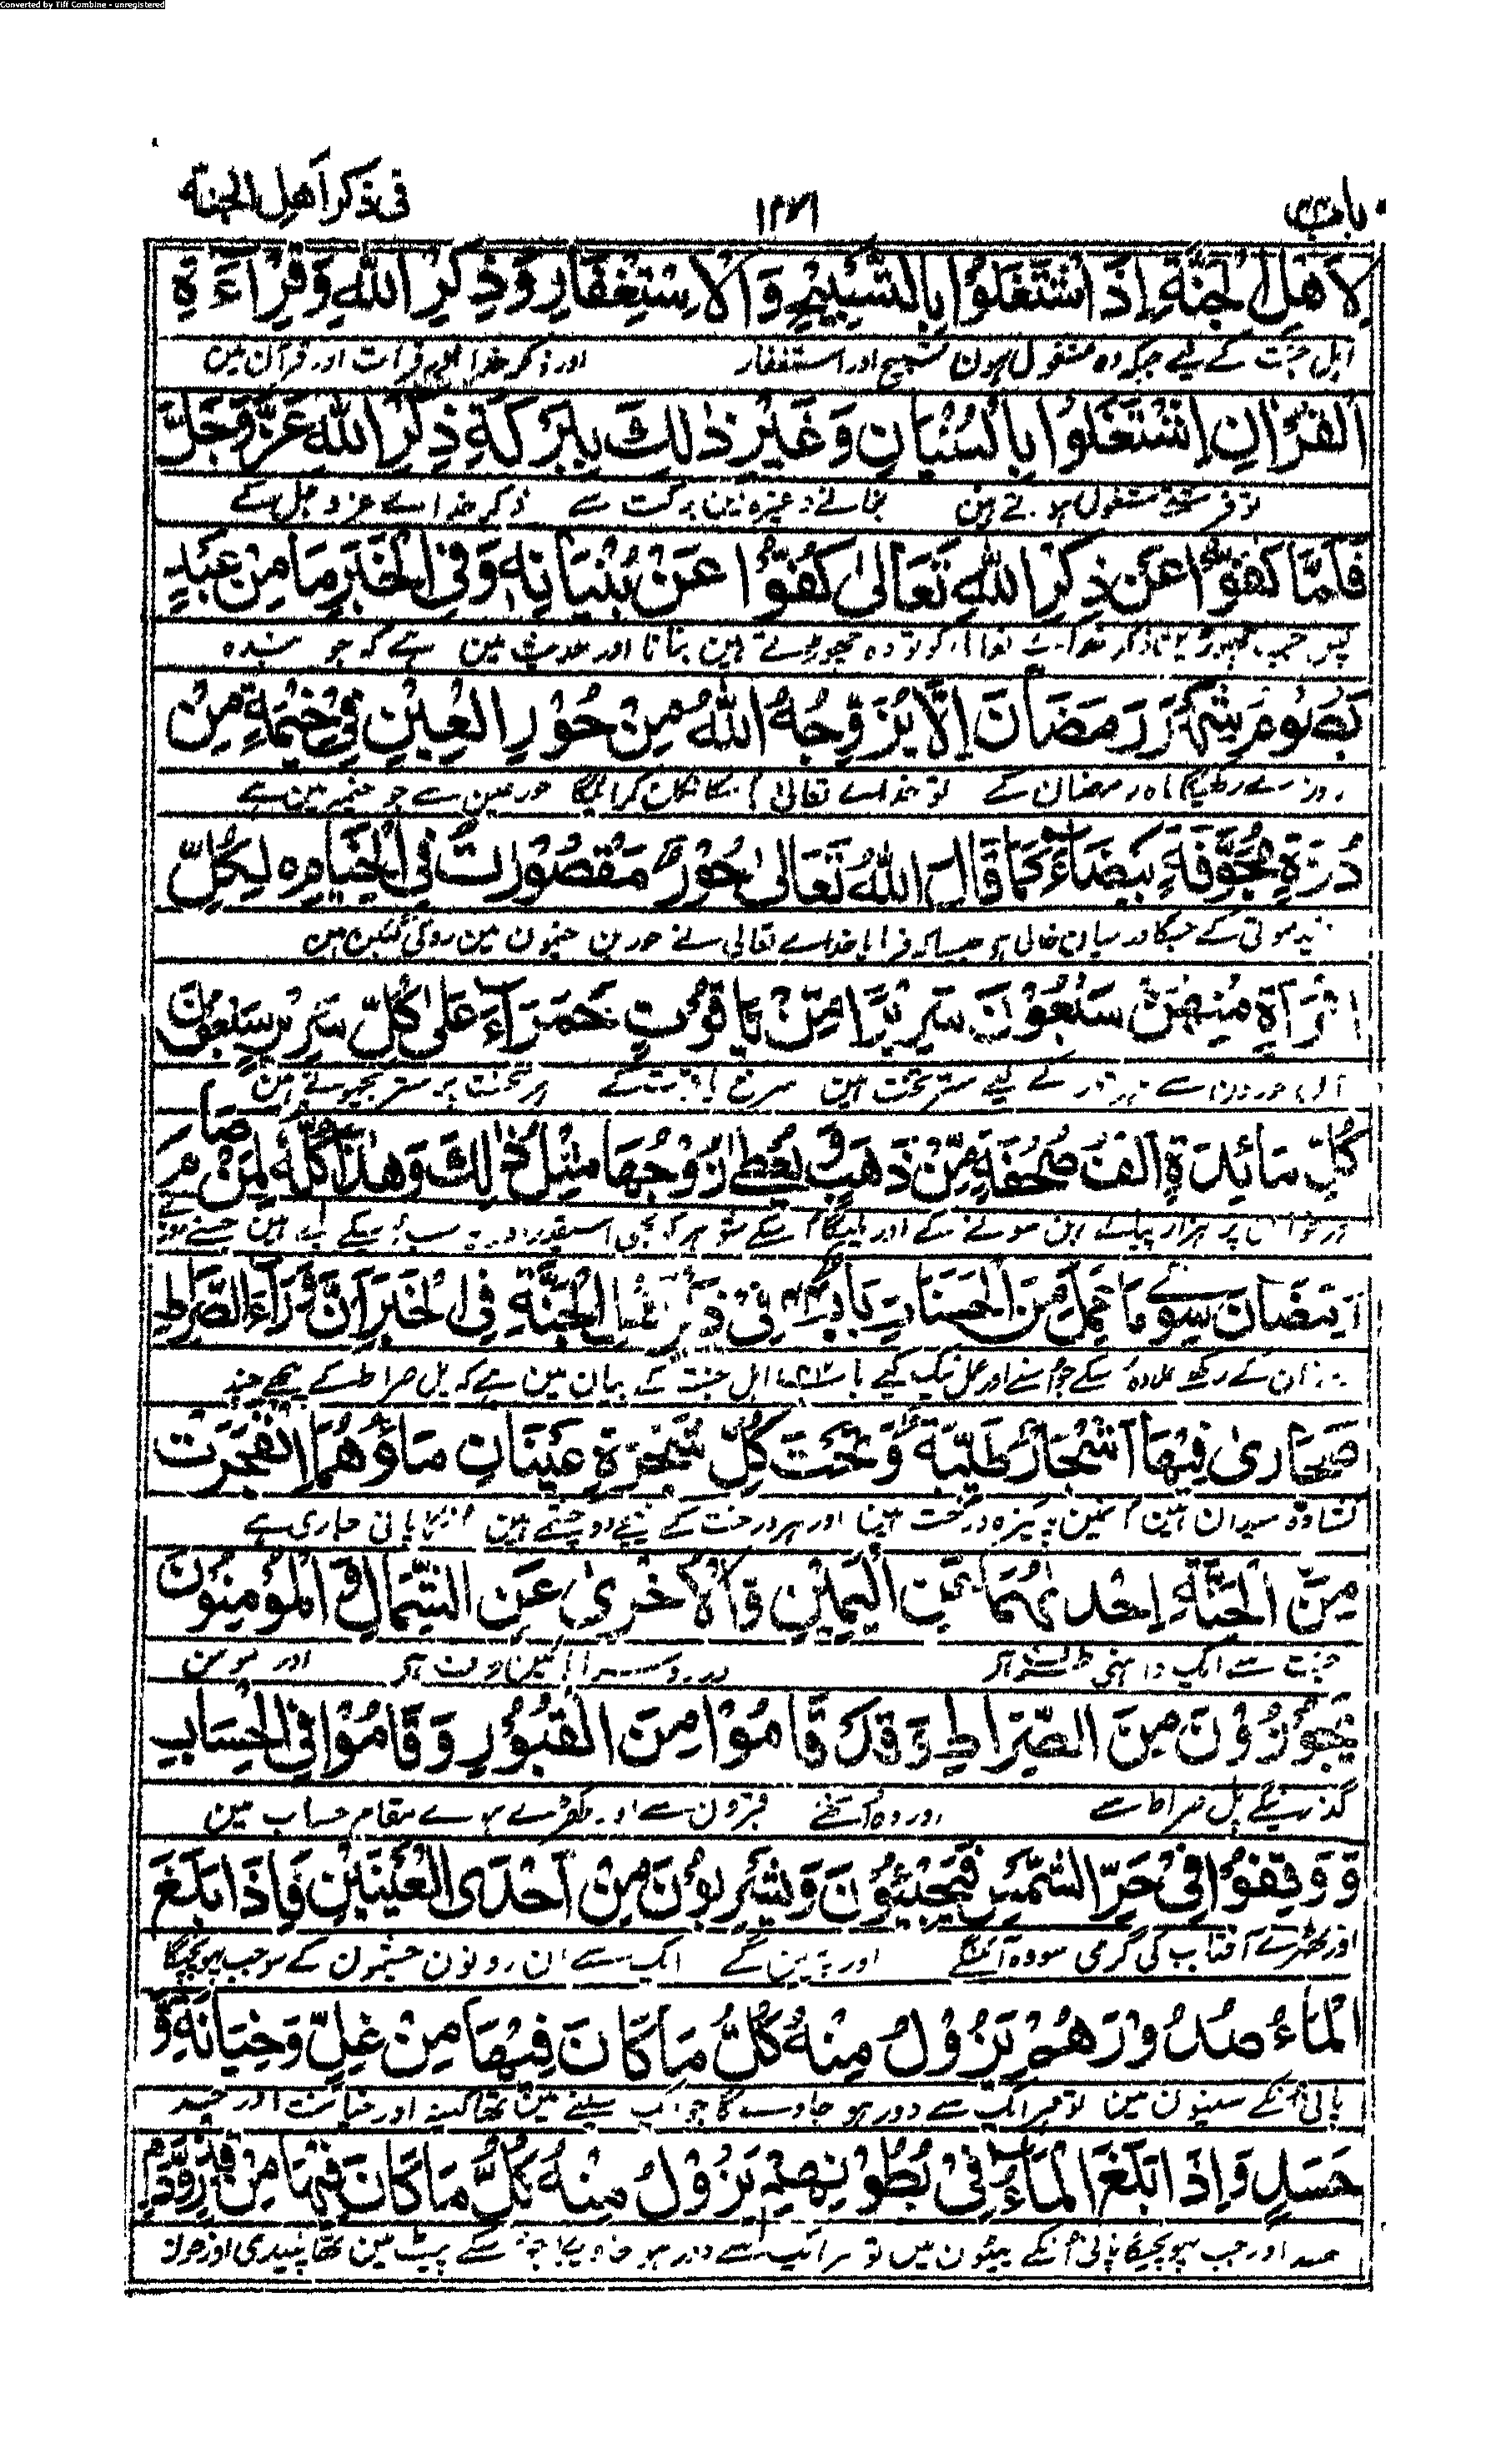 Converted by Tiff Combine - unregistered
باب
فی ذکر اھل الجنة
لِاَهْلِ الْجَنَّةِ اِذَا اشْتَغَلُوْا بِالتَّسْبِيْحِ وَالْاِسْتِغْفَارِ وَذِكْرِ اللهِ وَقِرَاءَةِ
اہل جنت کے لیے جبکہ وہ مشغول ہون تسبیح اور استغفار اور ذکر خدا اور قرات اور قرآن مین
الْقُرْاٰنِ اِشْتَغَلُوْا بِالْبُنْيَانِ وَغَيْرِ ذٰلِكَ بِبَرَكَةِ ذِكْرِ اللهِ عَزَّ وَجَلَّ
تو فرشتے مشغول ہوتے ہین بنانے وغیرہ مین برکت سے ذکر خداے عز و جل کے
فَلَمَّا كَفُّوْا عَنْ ذِكْرِ اللهِ تَعَالٰى كَفُّوْا عَنْ بُنْيَانِهٖ وَفِي الْخَبَرِ مَا مِنْ عَبْدٍ
پس جب ذکر کو تو وہ چھوڑتے ہین بنانا اور حدیث مین ہے کہ جو بندہ
يَصُوْمُ شَهْرَ رَمَضَانَ اِلَّا يُزَوِّجُهُ اللهُ مِنْ حُوْرِ الْعِيْنِ فِيْ خَيْمَةٍ مِنْ
روزے رکھیگا ماہ رمضان کے تو خداے تعالیٰ اسکا نکاح کرائیگا حور عین سے جو خیمہ مین ہے
دُرَّةٍ مُجَوَّفَةٍ بَيْضَاءَ كَمَا قَالَ اللهُ تَعَالٰى حُوْرٌ مَقْصُوْرَاتٌ فِي الْخِيَامِ ہ لِكُلِّ
موتی کے جسکا درمیان خالی ہو جیسا کہ فرمایا خداے تعالی نے حورین خیمون مین روکی گئین ہین
امْرَاَةٍ مِنْهُنَّ سَبْعُوْنَ سَرِيْرًا مِنْ يَاقُوْتٍ حَمْرَاءَ عَلٰى كُلِّ سَرِيْرٍ سَبْعُوْنَ
حورون سے ہر حور کے لیے ستر تخت ہین سرخ یاقوت کے ہر تخت پر ستر بچھونے ہین
كُلِّ مَائِدَةٍ اَلْفُ صُحْفَةٍ مِنْ ذَهَبٍ وَيُعْطٰى زَوْجُهَا مِثْلُ ذٰلِكَ وَهٰذَا كُلُّهُ لِمَنْ صَامَ
پر ہزار پیالے ہین سونے کے اور ملیگا اسکے شوہر کو بھی اسیقدر اور یہ سب اسکے لیے ہین جسنے
رَمَضَانَ سِوٰى مَا عَمِلَ مِنَ الْحَسَنَاتِ بَاب فِيْ ذِكْرِ اَهْلِ الْجَنَّةِ فِي الْخَبَرِ اَنَّ وَرَاءَ الصِّرَاطِ
رمضان کے رکھے علاوہ اسکے جو اسنے اور عمل نیک کیے باب اہل جنت کے بیان مین ہے کہ پل صراط کے پیچھے چند
صَحَارٰى فِيْهَا اَشْجَارٌ طَيِّبَةٌ وَتَحْتَ كُلِّ شَجَرَةٍ عَيْنَانِ مَاؤُهُمَا انْفَجَرَتْ
کشادہ میدان ہین انمین پاکیزہ درخت ہین اور ہر درخت کے نیچے دو چشمے ہین انکا پانی جاری ہے
مِنَ الْجَنَّةِ اِحْدٰىهُمَا عَنِ الْيَمِيْنِ وَالْاُخْرٰى عَنِ الشِّمَالِ وَالْمُؤْمِنُوْنَ
جنت سے ایک داہنی طرف اور دوسرا بائین طرف اور مومن
يَجُوْزُوْنَ مِنَ الصِّرَاطِ وَقَدْ قَامُوْا مِنَ الْقُبُوْرِ وَقَامُوْا فِي الْحِسَابِ
گذرینگے پل صراط سے اور وہ اٹھے قبرون سے اور کھڑے ہوے مقام حساب مین
وَوَقَفُوْا فِيْ حَرِّ الشَّمْسِ فَيَجِيْئُوْنَ وَيَشْرَبُوْنَ مِنْ اَحَدَى الْعَيْنَيْنِ وَاِذَا بَلَغَ
اور ٹھہرے آفتاب کی گرمی مین وہ آئینگے اور پئین گے ایک سے ان دونون چشمون کے سو جب پہونچیگا
الْمَاءُ صُدُوْرَهُمْ يَزُوْلُ مِنْهُ كُلُّ مَا كَانَ فِيْهَا مِنْ غِلٍّ وَخِيَانَةٍ وَ
پانی انکے سینون مین تو ہر ایک سے دور ہو جاوے گا جو انکے سینے مین تھا کینہ اور خیانت اور حسد
حَسَدٍ وَاِذَا بَلَغَ الْمَاءُ فِيْ بُطُوْنِهِمْ يَزُوْلُ مِنْهُ كُلُّ مَا كَانَ فِيْهَا مِنْ قَذَرٍ وَدَمٍ
حسد اور جب پہونچیگا پانی انکے پیٹون میں تو ہر ایک سے دور ہو جاویگا جو انکے پیٹ مین تھا پلیدی اور خون